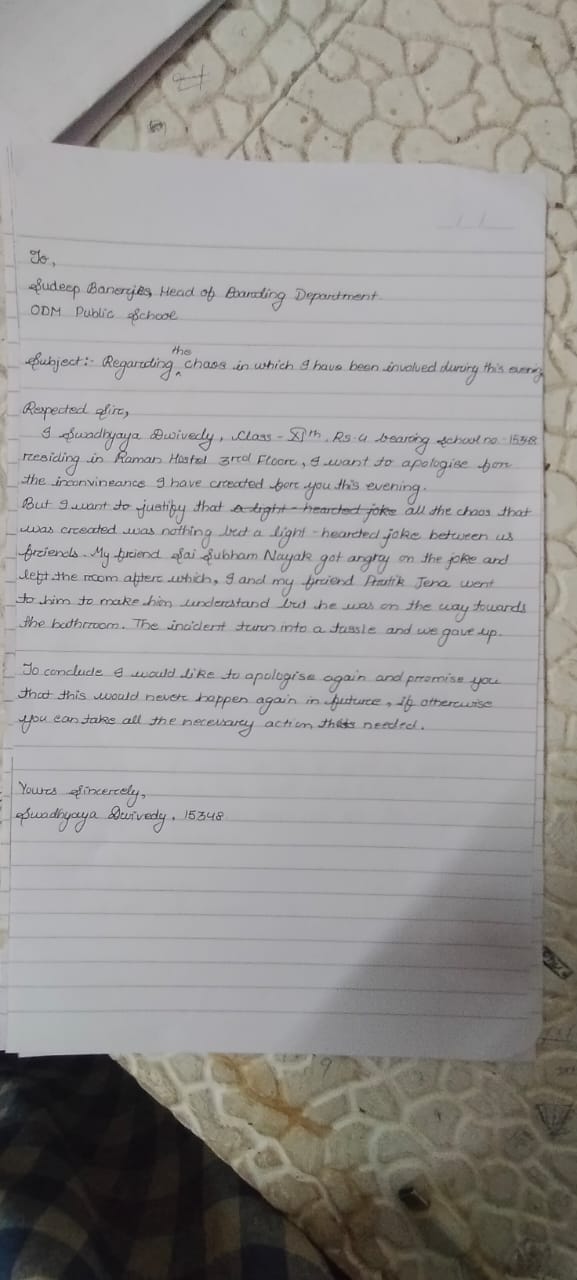 To,
Sudeep Banerjee, Head of Boarding Department
ODM Public School
Subject:- Regarding the chaos in which I have been involved during this evening
Respected Sir,
I Swadhyaya Dwivedy, Class - XIth, Rs-4 bearing School no - 15348
residing in Raman Hostel 3rd Floor, I want to apologise for
the inconvineance I have created for you this evening.
But I want to justify that a light-hearted joke all the chaos that
was created was nothing but a light-hearted joke between us
friends. My friend Sai Subham Nayak got angry on the joke and
left the room after which, I and my friend Pratik Jena went
to him to make him understand but he was on the way towards
the bathroom. The incident turn into a tussle and we gave up.
To conclude I would like to apologise again and promise you
that this would never happen again in future, If otherwise
you can take all the necessary action needed.
Yours Sincerely,
Swadhyaya Dwivedy. 15348